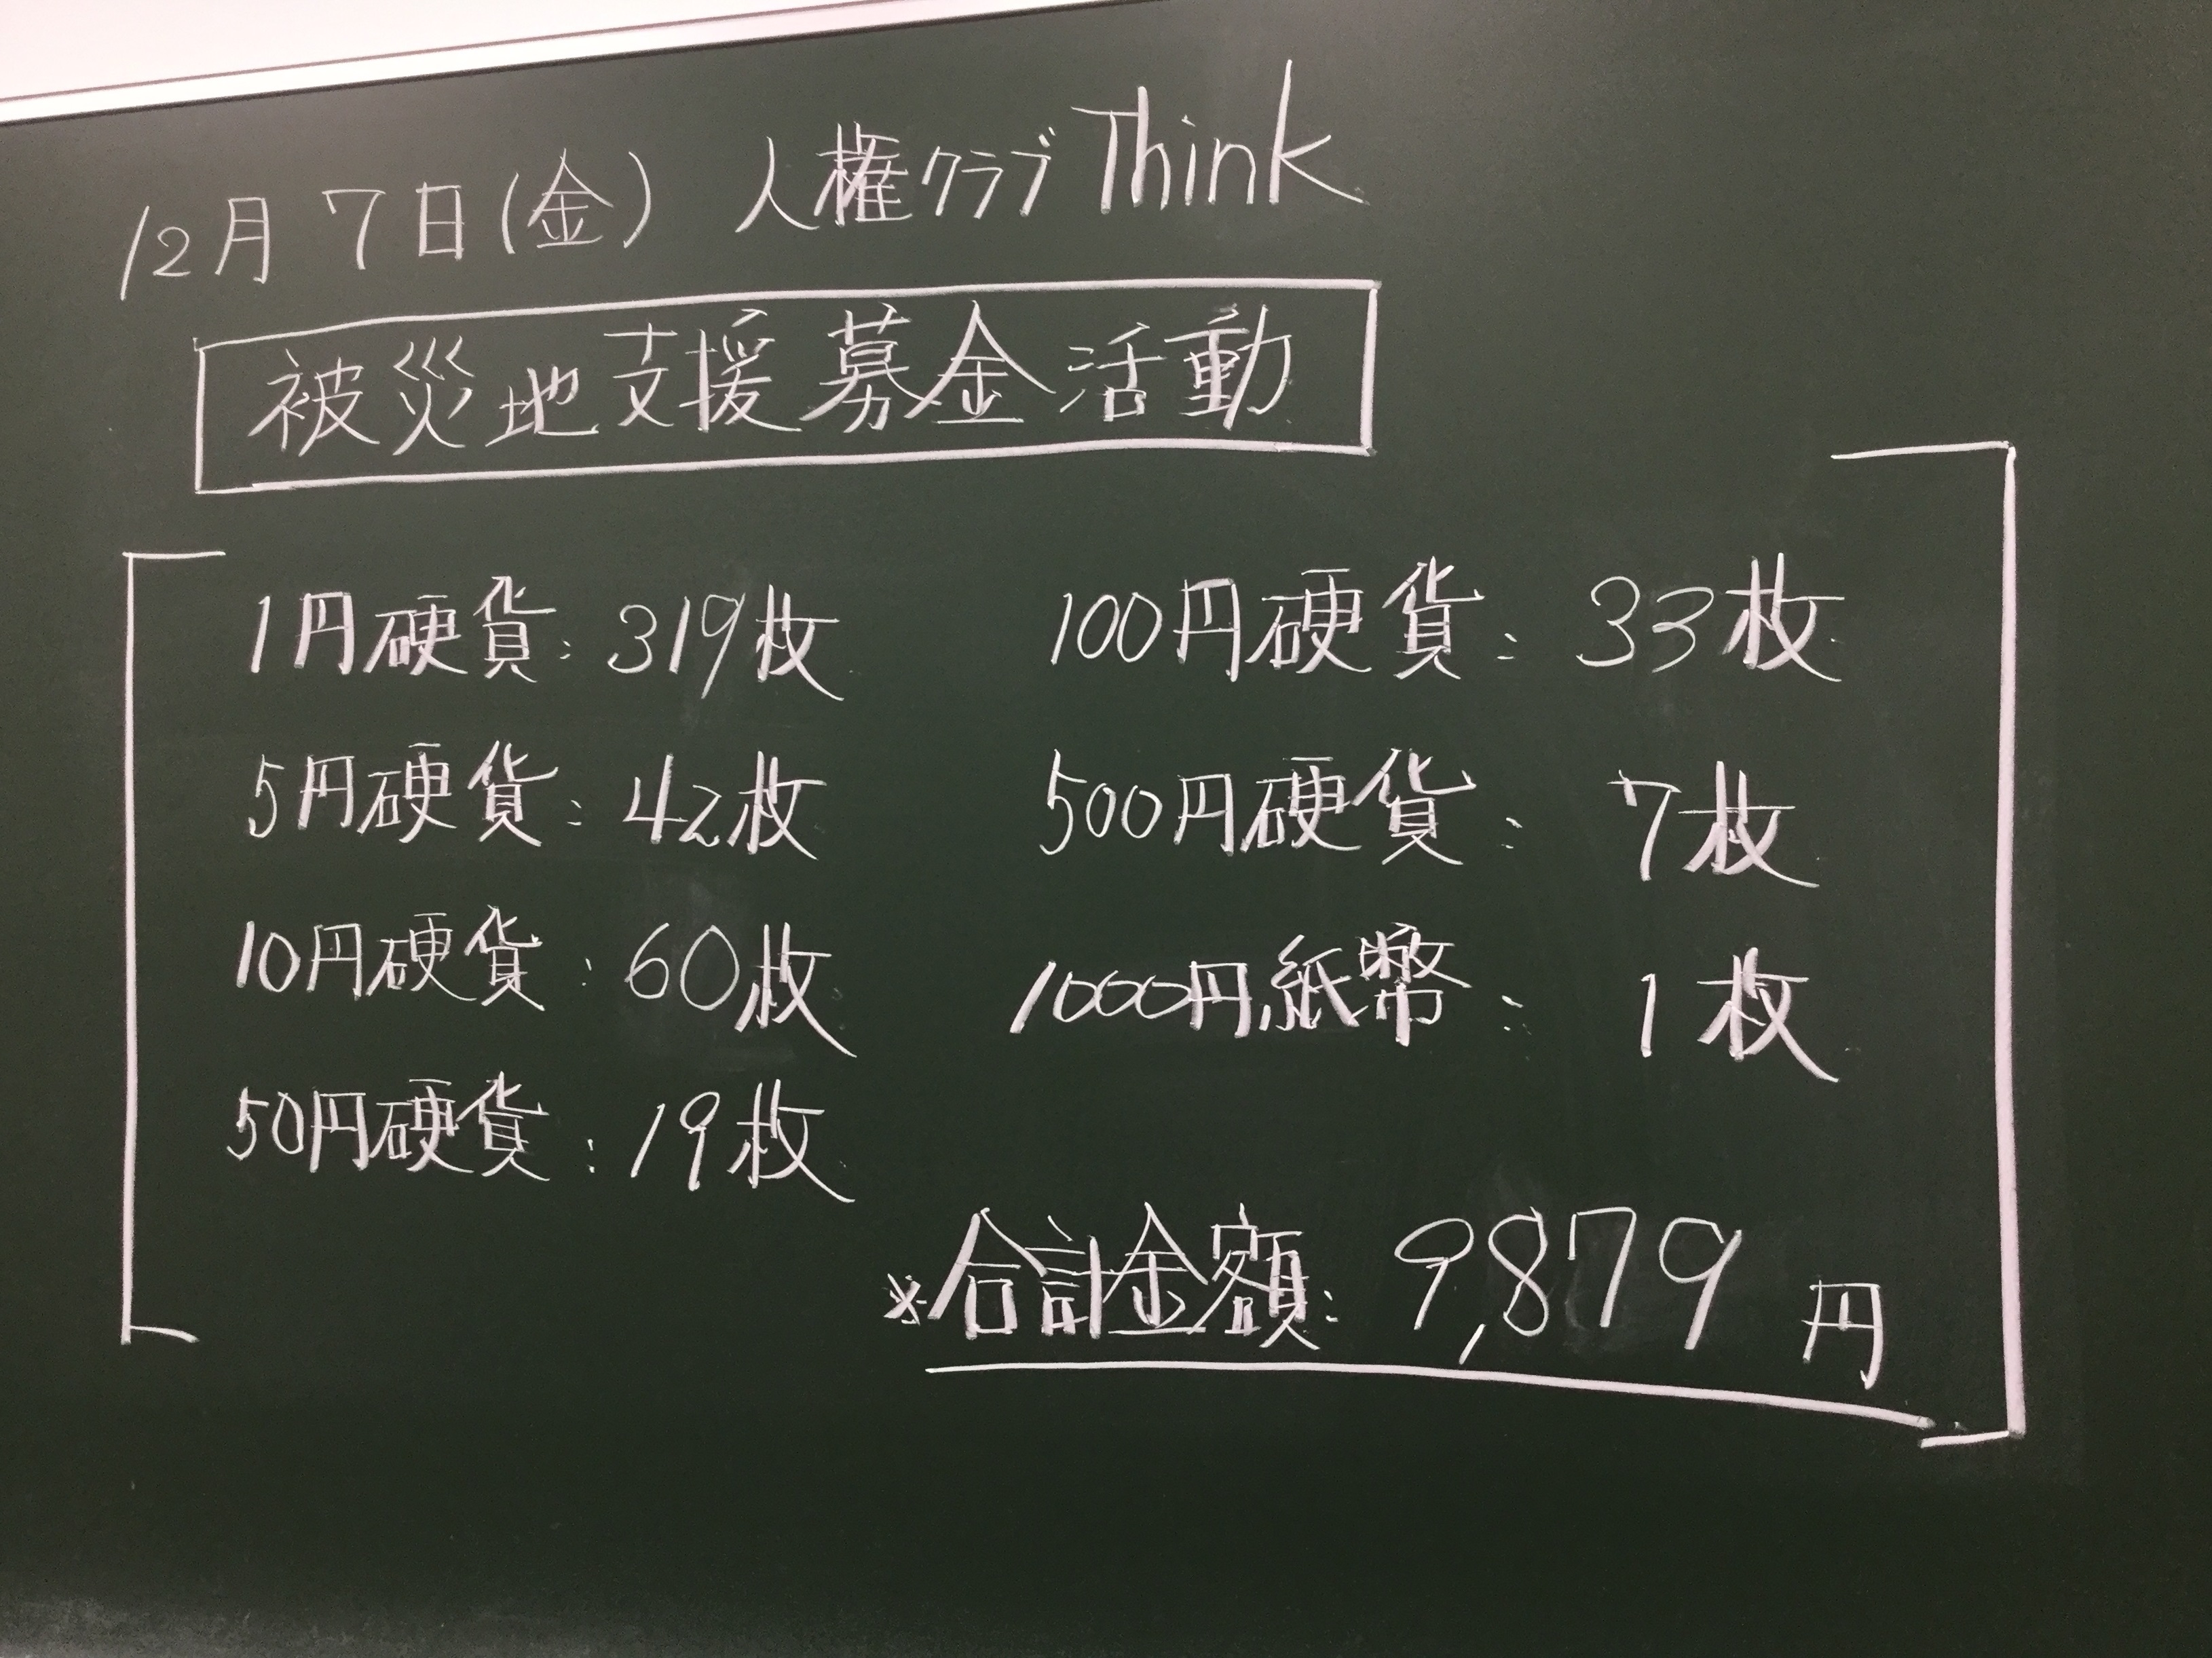 12月7日(金) 人権クラブ Think
被災地支援募金活動
1円硬貨: 319枚
5円硬貨: 42枚
10円硬貨: 60枚
50円硬貨: 19枚
100円硬貨: 33枚
500円硬貨: 7枚
1000円紙幣: 1枚
※合計金額: 9,879円